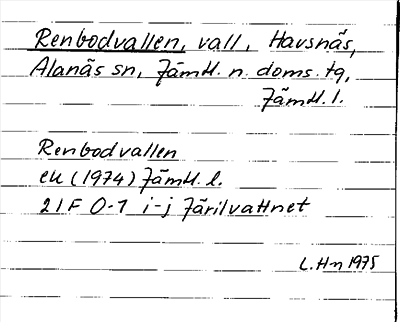 Renbodvallen, vall, Havsnäs,
Alanäs sn, Jämtl. n. doms. tg,
Jämtl. l.
Renbodvallen
ek (1974) Jämtl. l.
21F 0-1 i-j Järilvattnet
L. Hn 1975